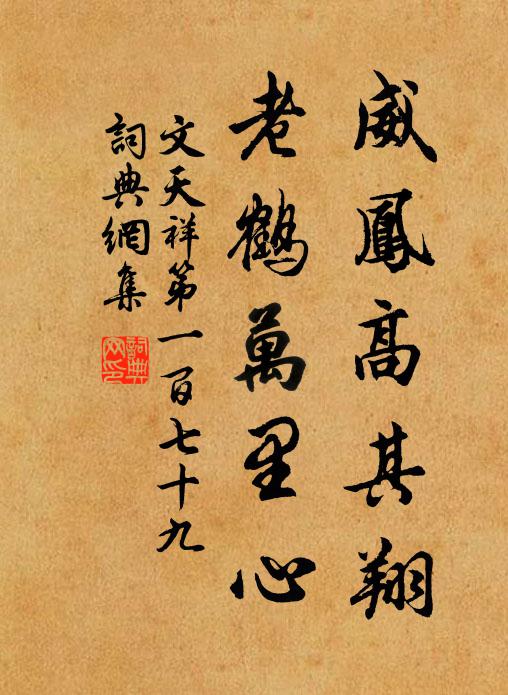 威鳳高其翔
老鶴萬里心
文天祥第一百七十九
詞典網集
詞典網印